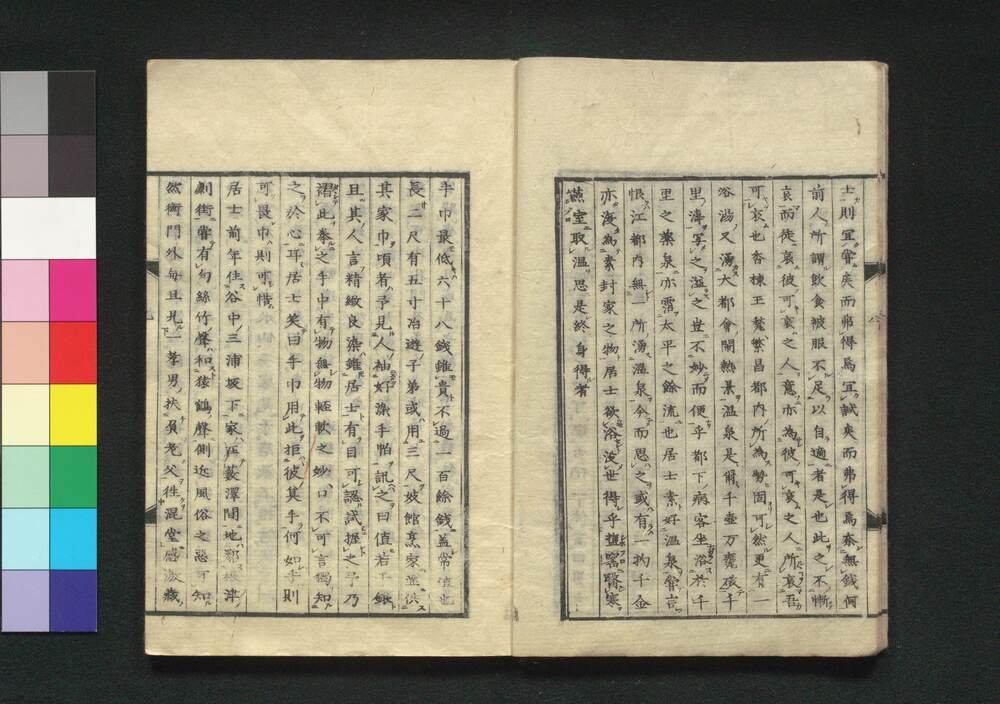 士則宜嘗矣而弗得焉宜試矣而弗得焉奈無銭何
前人所謂飲食被服不足以自適者是也此之不慚
哀而徒哀彼可哀之人意亦為彼可哀之人所哀吾
可哀也呇楝王甃繁昌都内所為勢固可然更有一
浴湯又湧大都會閙熱景温泉是甯千壷万甕張千
里海寫之溢之豈不妙而便乎都下病客坐浴於千
里之薬泉亦霑太平之餘流也居士素好温泉嘗言
恨江都内無一所湧温泉今而思之或有一掬千金
亦海為素封家之物居士欲浴没世得乎
燕室取温思是終身得者
手巾最低六十八銭雖貴不過一百餘銭蓋常値也
長二尺有五寸冶遊子弟或用三尺妓館烹家並供
其家巾頃者予見人袖好染手帕訊之曰値若干緡
且其人言精緻良染雖居士有目可認試握之予乃
摺此拳之手中有物無物軽軟之妙口不可言獨知
之於心耳居士笑曰手巾用此拒彼其手何如手則
可畏巾則可惜
居士前年住谷中三浦坂下家在薮澤閒地鄰根津
劇街嘗有句絲竹聲和猿鶴聲側近風俗之惡可知
然衙門外毎旦見一孝男扶負老父徃混堂感激蔵